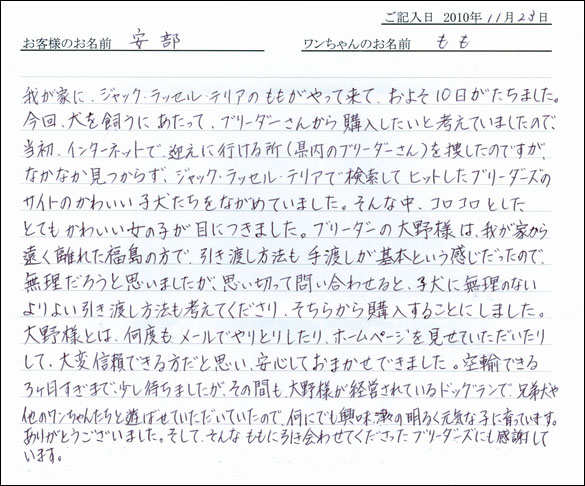 ご記入日 2010年11月23日
お客様のお名前 安部 ワンちゃんのお名前 もも
我が家に、ジャック・ラッセル・テリアのももがやって来て、およそ10日がたちました。
今回、犬を飼うにあたって、ブリーダーさんから購入したいと考えていましたので、
当初、インターネットで、迎えに行ける所(県内のブリーダーさん)を捜したのですが、
なかなか見つからず、ジャック・ラッセル・テリアで検索してヒットしたブリーダーズの
サイトのかわいい子犬たちをながめていました。そんな中、コロコロとした
とてもかわいい女の子が目につきました。ブリーダーの大野様は、我が家から
遠く離れた福島の方で、引き渡し方法も手渡しが基本という感じだったので、
無理だろうと思いましたが、思い切って問い合わせると、子犬に無理のない
よりよい引き渡し方法も考えてくださり、そちらから購入することにしました。
大野様とは、何度もメールでやりとりしたり、ホームページを見せていただいたり
して、大変信頼できる方だと思い、安心しておまかせできました。空輸できる
3ヶ月すぎまで、少し待ちましたが、その間も大野様が経営されているドッグランで、兄弟犬や
他のワンちゃんたちと遊ばせていただいていたので、何にでも興味津々の明るく元気な子に育っています。
ありがとうございました。そして、そんなももに引き合わせてくださったブリーダーズにも感謝して
います。